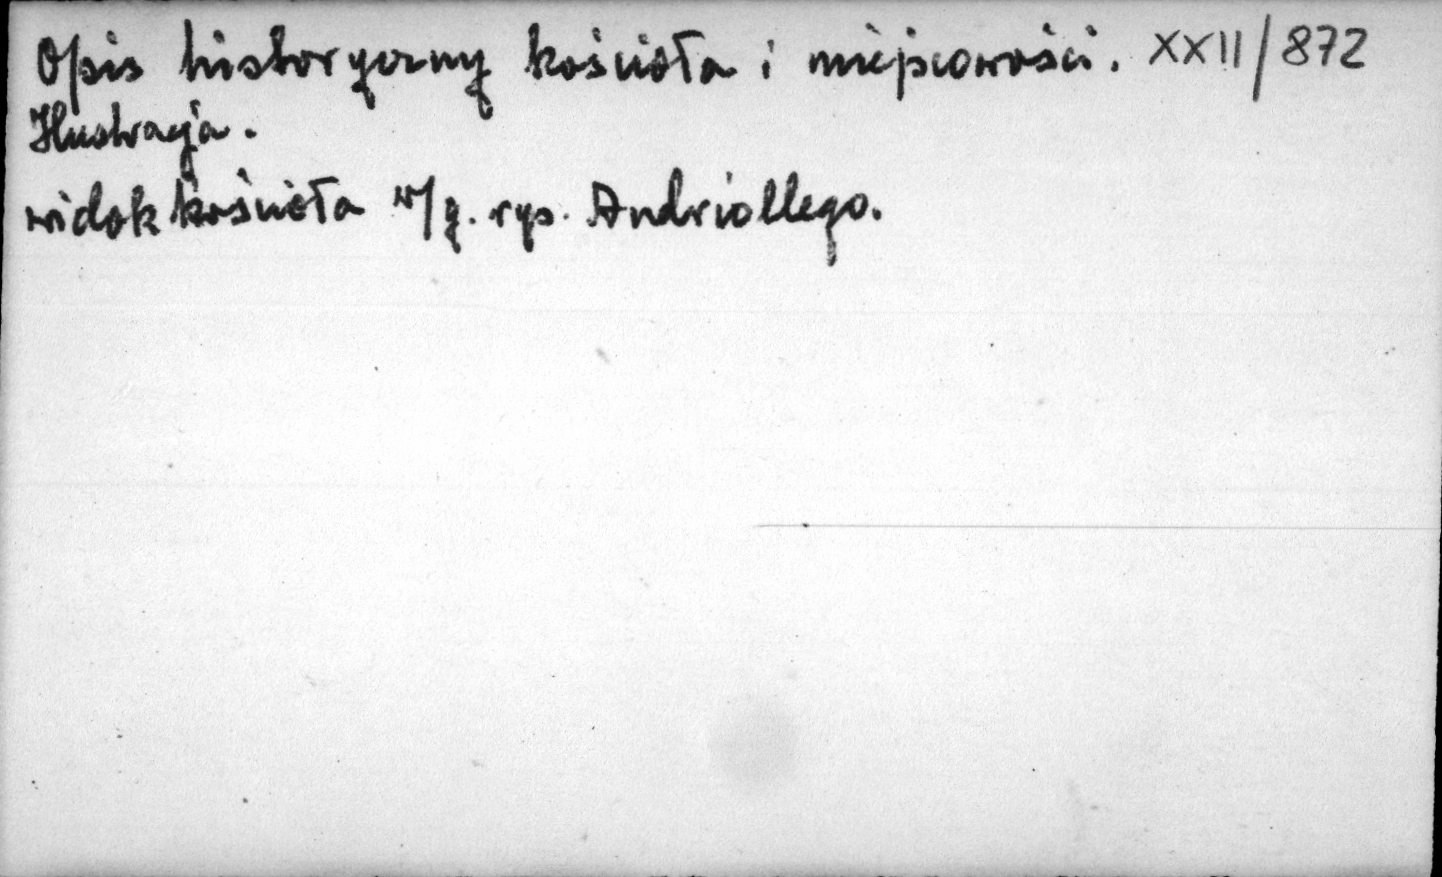 Opis historyczny kościoła i miejscowości. XXII/872
Ilustracja.
widok kościoła w/g. rys. Andriollego.